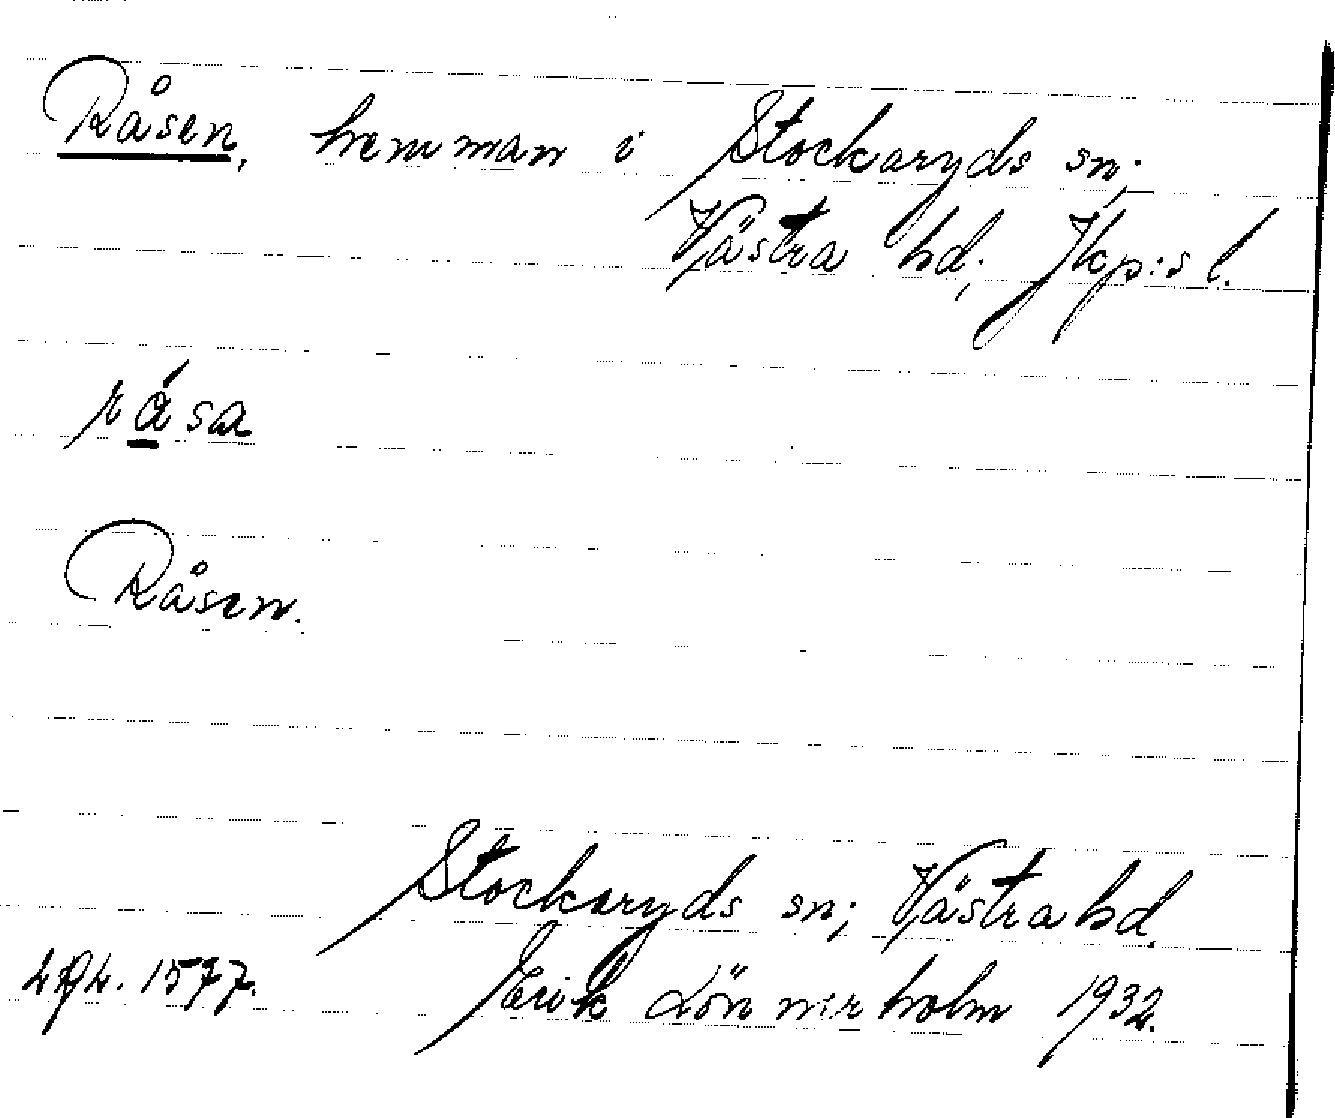 Råsen, hemman i Stockaryds sn;
Västra hd; Jkp:s l.
rása
Råsen.
Stockaryds sn; Västra hd.
1577. Erik Lönnerholm 1932.